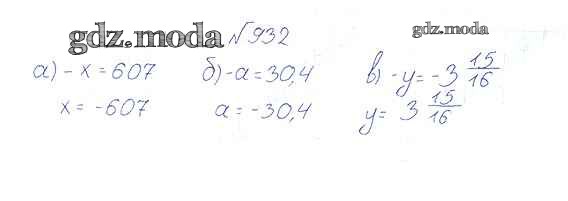 gdz.moda №932 gdz.moda
а) -x = 607 б) -a = 30,4 в) -y = -3 15/16
x = -607 a = -30,4 y = 3 15/16